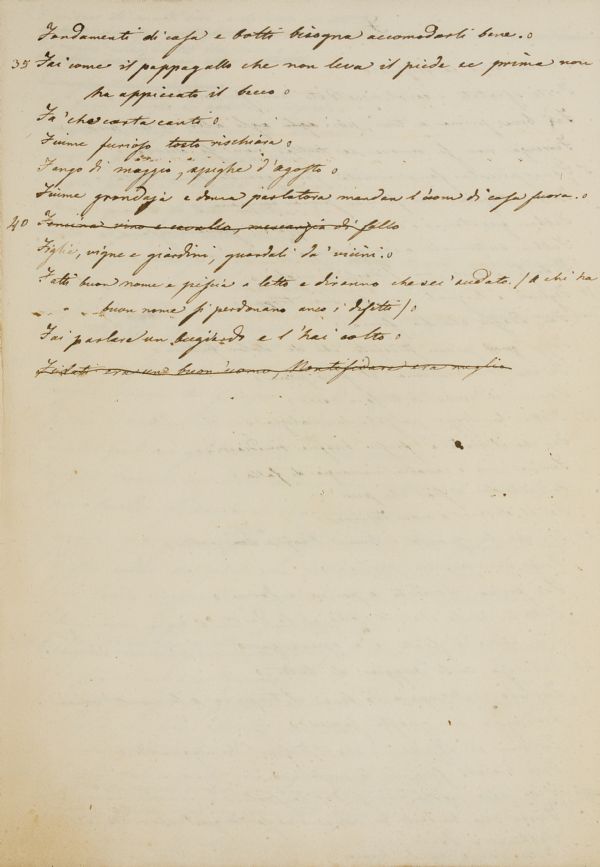 Fondamenti di casa e botti bisogna accomodarli bene.o
35 Fai come il pappagallo che non leva il piede se prima non
ha appiccato il becco o
Fa' che carta canti o
Fiume furioso tosto rischiara o
Fango di maggio, spighe d'agosto o
Fiume grondaja e donna parlatora mandan l'uom di casa fuora.o
40 Femina vino e cavallo, mercanzia di fallo
Figlie, vigne e giardini, guardali da' vicini.o
Fatti buon nome e piscia a letto e diranno che sei sudato. (A chi ha
buon nome si perdonano anco i difetti) o
Fai parlare un bugiardo e l'hai colto o
Fidati era un buon uomo, Nontifidare era meglio